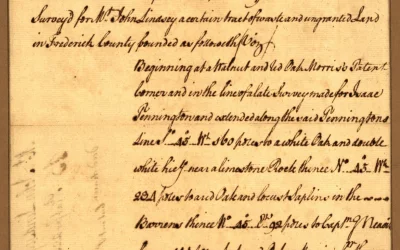 Survey'd for Mr. John Lindsey a certain tract of waste and ungranted Land
in Frederick County bounded as followeth
Beginning at a Walnut and red Oak Morris's Patent
corner and in the line of a late Survey made for Isaac
Pennington and extended along the said Penningtons
line So. 45 Wt. 560 poles to a white Oak and double
white near a limestone Rock thence No. 45 Wt.
234 poles to a red Oak and locust Saplins in the
Barrens thence No. 45 Et. poles to Capt.